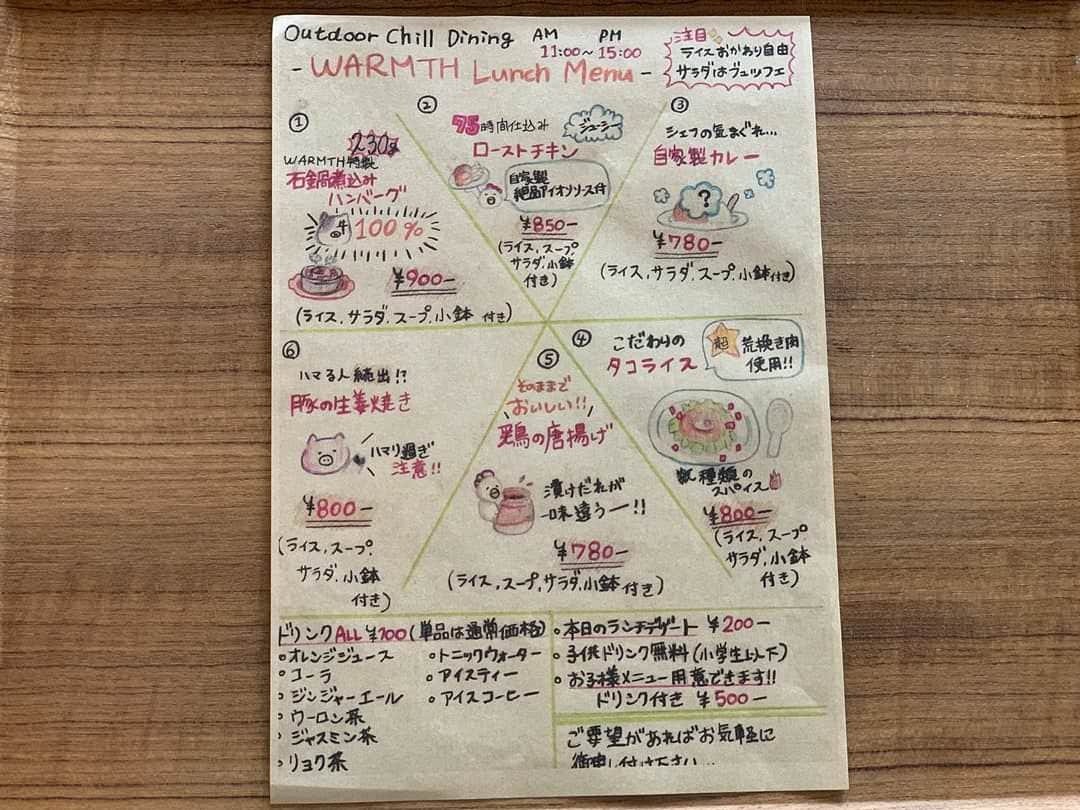 Outdoor Chill Dining AM PM
11:00~15:00
- WARMTH Lunch Menu -
注目
ライスおかわり自由
サラダはヴュッフェ
①
230g
WARMTH特製
石鍋煮込み
ハンバーグ
牛100%
¥900-
(ライス,サラダ,スープ,小鉢付き)
②
75時間仕込み
ジューシー
ローストチキン
自家製
絶品アイオリソース付
¥850-
(ライス,スープ
サラダ,小鉢
付き)
③
シェフの気まぐれ...
自家製カレー
?
¥780-
(ライス,サラダ,スープ,小鉢付き)
④
こだわりの
タコライス
超荒挽き肉
使用!!
数種類の
スパイス
¥800-
(ライス,スープ
サラダ,小鉢
付き)
⑤
そのままで
おいしい!!
鶏の唐揚げ
漬けだれが
一味違うー!!
¥780-
(ライス,スープ,サラダ,小鉢付き)
⑥
ハマる人続出!?
豚の生姜焼き
ハマり過ぎ
注意!!
¥800-
(ライス,スープ,
サラダ,小鉢
付き)
ドリンクALL ¥100(単品は通常価格)
・オレンジジュース
・コーラ
・ジンジャーエール
・ウーロン茶
・ジャスミン茶
・リョク茶
・トニックウォーター
・アイスティー
・アイスコーヒー
・本日のランチデザート ¥200-
・子供ドリンク無料(小学生以下)
・お子様メニュー用意できます!!
ドリンク付き ¥500-
ご要望があればお気軽に
御申し付け下さい...